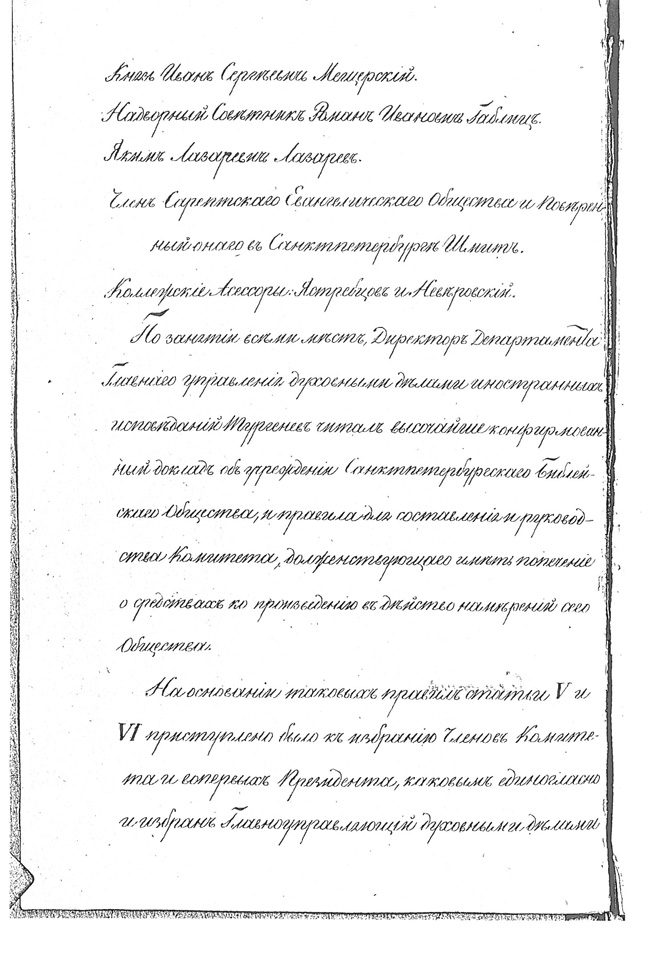 Князь Иванъ Сергѣевичъ Мещерскій.
Надворный Совѣтникъ Романъ Ивановичъ Габлицъ.
Якимъ Лазаревичъ Лазаревъ.
Членъ Сарептскаго Евангелическаго Общества и Повѣрен-
ный онаго въ Санктпетербургѣ Шмитъ.
Коллежскіе Асессоры: Ястребцовъ и Невѣровскій.
По занятіи всѣми мѣстъ, Директоръ Департамента
Главнаго управленія духовными дѣлами иностранныхъ
исповѣданій Тургеневъ читалъ высочайше конфирмован-
ный докладъ объ учрежденіи Санктпетербургскаго Библей-
скаго Общества, и правила для составленія и руковод-
ства Комитета, долженствующаго имѣть попеченіе
о средствахъ ко произведенію въ дѣйство намѣреній сего
Общества.
На основаніи таковыхъ правилъ статьи V и
VI приступлено было къ избранію Членовъ Комите-
та и вопервыхъ Президента, каковымъ единогласно
и избранъ Главноуправляющій духовными дѣлами